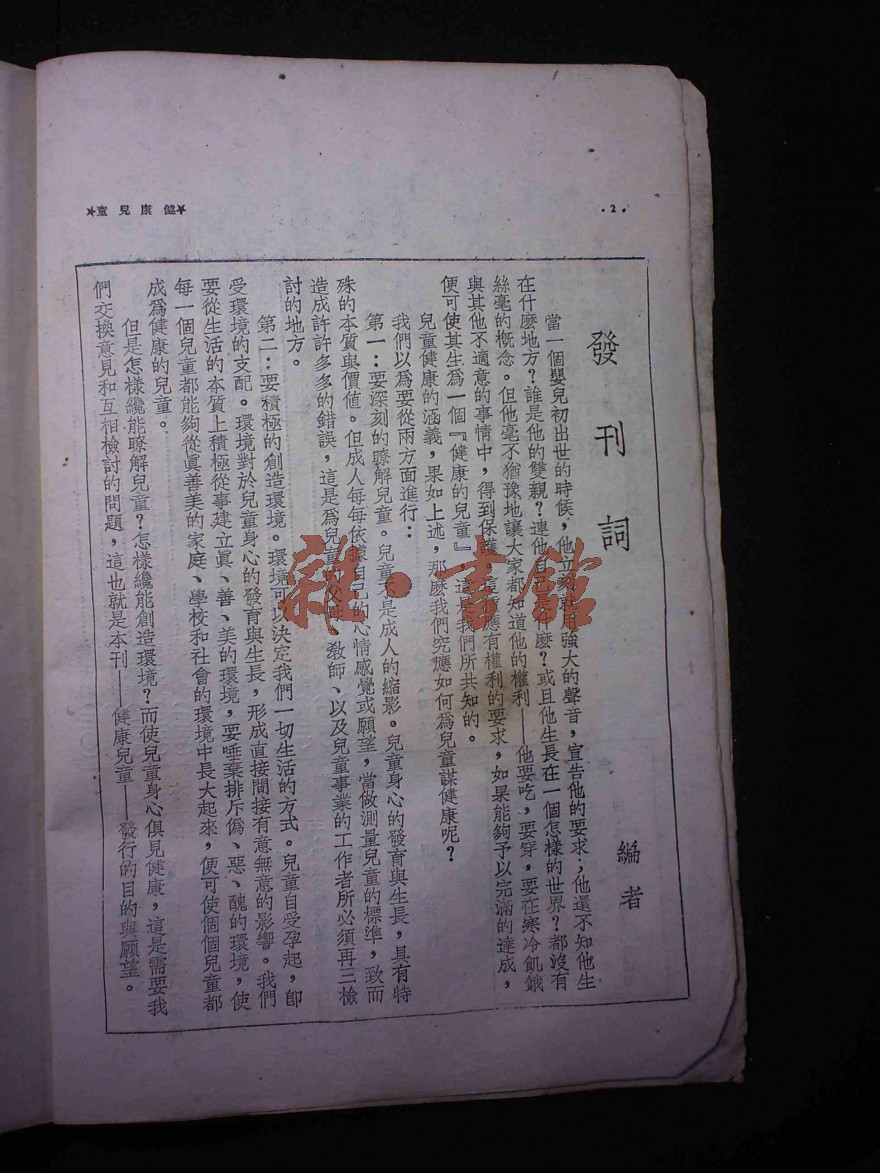 ★健康兒童★
·2·
發刊詞
編者
當一個嬰兒初出世的時候，他立刻就用強大的聲音，宣告他的要求；他還不知他生
在什麼地方？誰是他的雙親？連他自己是什麼？或且他生長在一個怎樣的世界？都沒有
絲毫的概念。但他毫不猶豫地讓大家都知道他的權利——他要吃，要穿，要在寒冷飢餓
與其他不適意的事情中，得到保護。這種應有權利的要求，如果能夠予以完滿的達成，
便可使其生爲一個『健康的兒童』，這是我們所共知的。
兒童健康的涵義，果如上述，那麼我們究應如何爲兒童謀健康呢？
我們以爲要從兩方面進行：
第一：要深刻的瞭解兒童。兒童不是成人的縮影。兒童身心的發育與生長，具有特
殊的本質與價值。但成人每每依據自己的心情感覺或願望，當做測量兒童的標準，致而
造成許許多多的錯誤，這是爲兒童的父母、敎師、以及兒童事業的工作者所必須再三檢
討的地方。
第二：要積極的創造環境。環境可以決定我們一切生活的方式。兒童自受孕起，卽
受環境的支配。環境對於兒童身心的發育與生長，形成直接間接有意無意的影響。我們
要從生活的本質上積極從事建立眞、善、美的環境，要唾棄排斥僞、惡、醜的環境，使
每一個兒童都能夠從眞善美的家庭、學校和社會的環境中長大起來，便可使個個兒童都
成爲健康的兒童。
但是怎樣纔能瞭解兒童？怎樣纔能創造環境？而使兒童身心俱見健康，這是需要我
們交換意見和互相檢討的問題，這也就是本刊——健康兒童——發行的目的與願望。
雜·書館